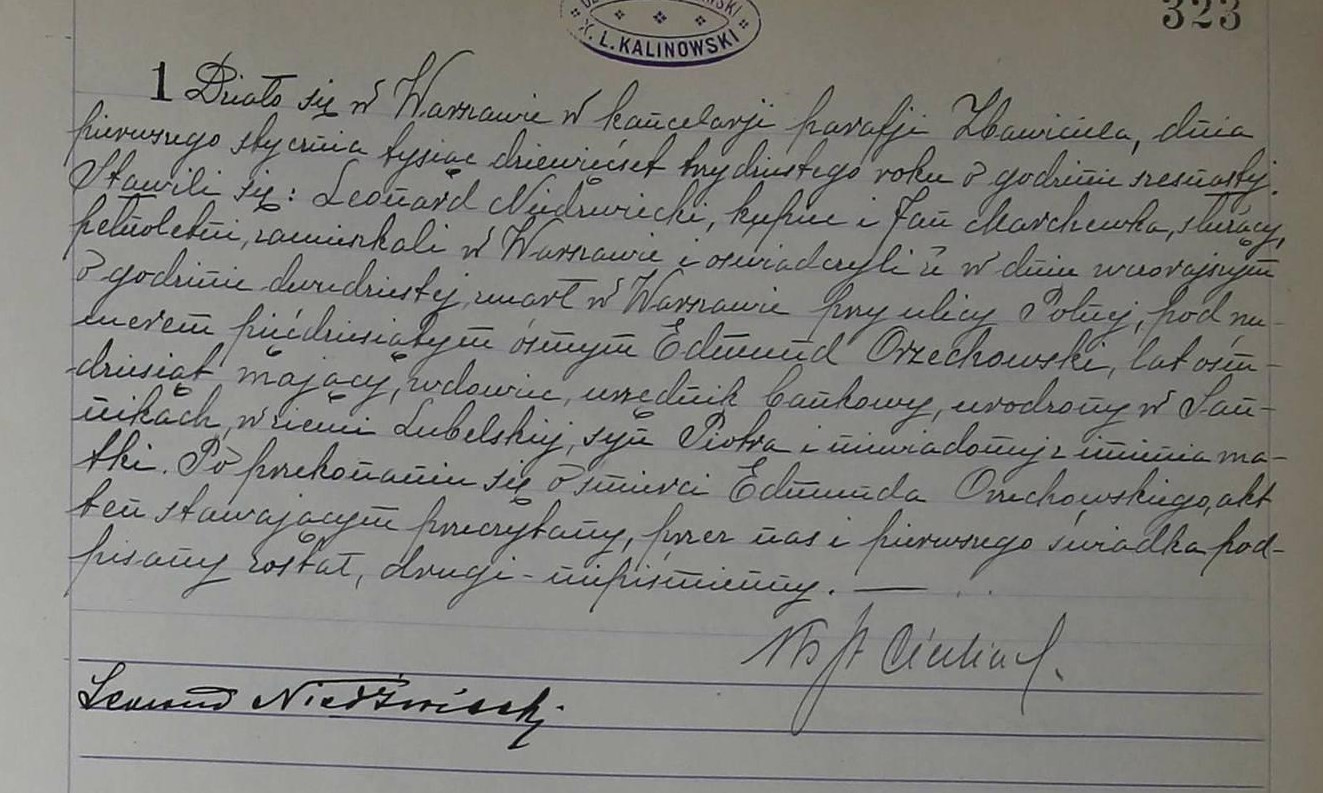 X. L. KALINOWSKI
323
1 Działo się w Warszawie w kancelarji parafji Zbawiciela, dnia
pierwszego stycznia tysiąc dziewięćset trzydziestego roku o godzinie szesnastej.
Stawili się: Leonard Niedzwiecki, kupiec i Jan Marchewka, służący,
pełnoletni, zamieszkali w Warszawie i oświadczyli że w dniu wczorajszym
o godzinie dwudziestej, zmarł w Warszawie przy ulicy Polnej, pod nu-
merem pięćdziesiątym ósmym Edmund Orzechowski, lat ośm-
dziesiąt mający, wdowiec, urzędnik bankowy, urodzony w San-
nikach, w ziemi Lubelskiej, syn Piotra i niewiadomej z imienia ma-
tki. Po przekonaniu się o śmierci Edmunda Orzechowskiego, akt
ten stawającym przeczytany, przez nas i pierwszego świadka pod-
pisany został, drugi - niepiśmienny. —
Leonard Niedźwiecki